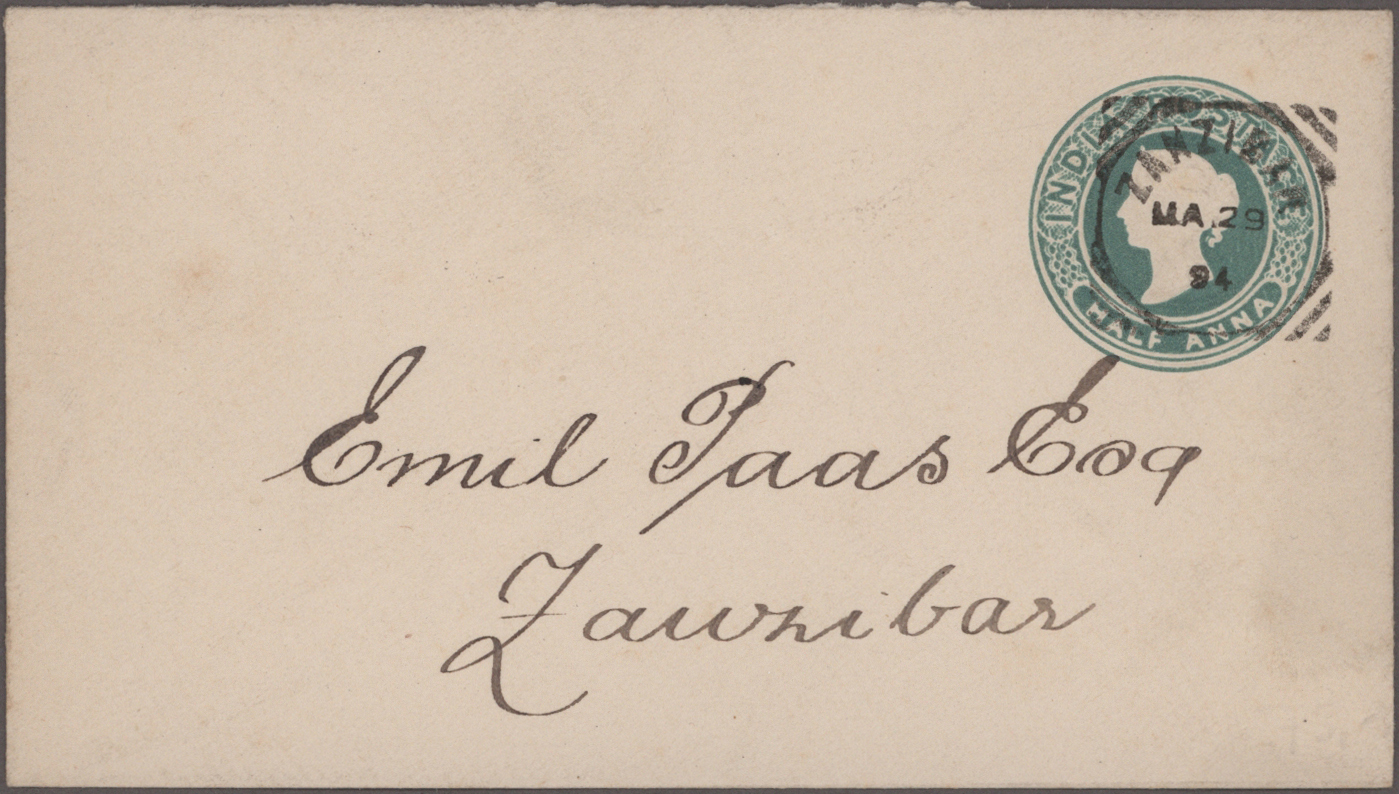 INDIA POSTAGE
ZANZIBAR
MA.29
94
HALF ANNA
Emil Paas Esq
Zanzibar